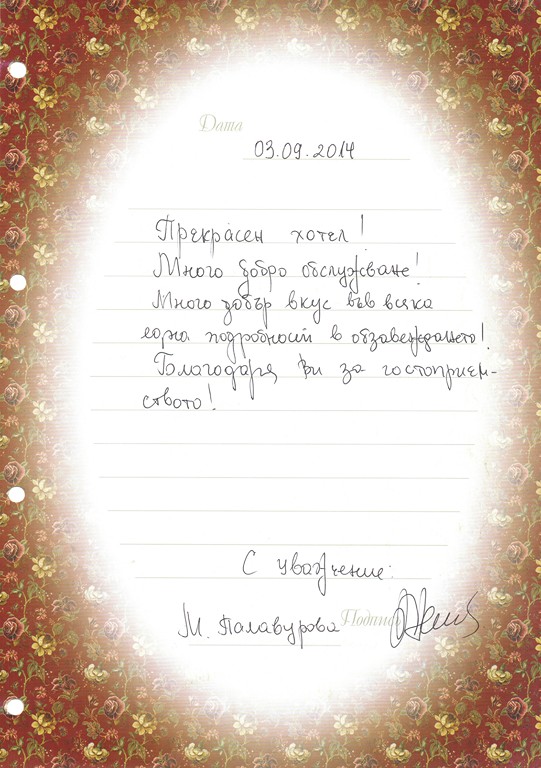 Дата
03.09.2014
Прекрасен хотел!
Много добро обслужване!
Много добър вкус във всяка
една подробност в обзавеждането!
Благодаря Ви за гостоприем-
ството!
С уважение:
М. Палавурова Подпись